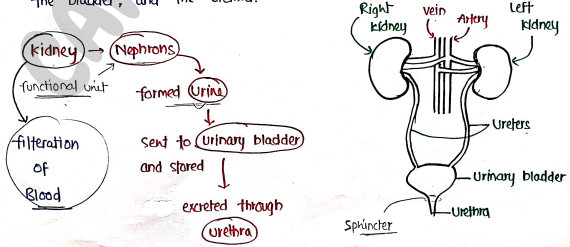 the bladder, and the urethra.
Kidney → Nephrons
functional unit
formed Urine
filteration
of
Blood
sent to Urinary bladder
and stored
excreted through
urethra
Right
kidney
vein
Artery
Left
kidney
Ureters
Urinary bladder
Sphincter
Urethra